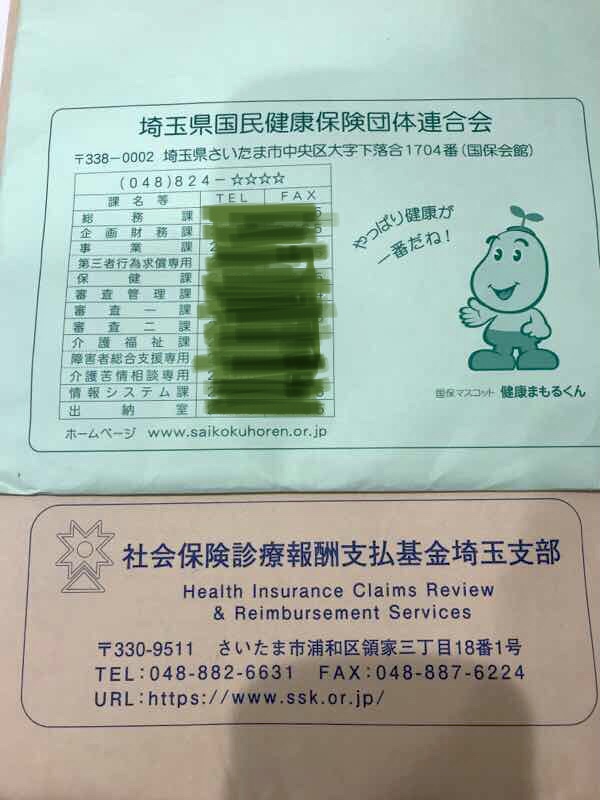 埼玉県国民健康保険団体連合会
〒338-0002 埼玉県さいたま市中央区大字下落合1704番(国保会館)
(048)824-☆☆☆☆
課名等 TEL FAX
総務課
企画財務課
事業課
第三者行為求償専用
保健課
審査管理課
審査一課
審査二課
介護福祉課
障害者総合支援専用
介護苦情相談専用
情報システム課
出納室
ホームページ www.saikokuhoren.or.jp
やっぱり健康が
一番だね!
国保マスコット 健康まもるくん
社会保険診療報酬支払基金埼玉支部
Health Insurance Claims Review
& Reimbursement Services
〒330-9511 さいたま市浦和区領家三丁目18番1号
TEL:048-882-6631 FAX:048-887-6224
URL:https://www.ssk.or.jp/